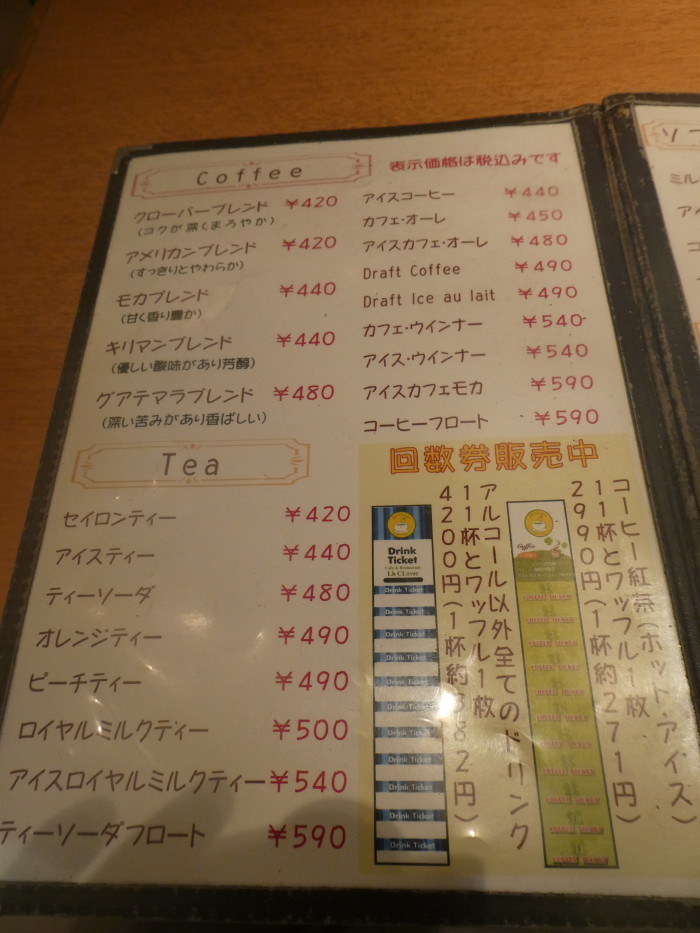 Coffee
表示価格は税込みです
クローバーブレンド ¥420
(コクが深くまろやか)
アメリカンブレンド ¥420
(すっきりとやわらか)
モカブレンド ¥440
(甘く香り豊か)
キリマンブレンド ¥440
(優しい酸味があり芳醇)
グアテマラブレンド ¥480
(深い苦みがあり香ばしい)
アイスコーヒー ¥440
カフェ・オーレ ¥450
アイスカフェ・オーレ ¥480
Draft Coffee ¥490
Draft Ice au lait ¥490
カフェ・ウインナー ¥540
アイス・ウインナー ¥540
アイスカフェモカ ¥590
コーヒーフロート ¥590
Tea
セイロンティー ¥420
アイスティー ¥440
ティーソーダ ¥480
オレンジティー ¥490
ピーチティー ¥490
ロイヤルミルクティー ¥500
アイスロイヤルミルクティー ¥540
ティーソーダフロート ¥590
回数券販売中
コーヒー紅茶(ホット・アイス)
11杯とワッフル1枚
2990円(1杯約271円)
アルコール以外全てのドリンク
11杯とワッフル1枚
4200円(1杯約382円)
Drink
Ticket
Drink Ticket
Drink Ticket
Drink Ticket
Drink Ticket
Drink Ticket
Drink Ticket
Drink Ticket
Drink Ticket
Drink Ticket
Drink Ticket
Drink Ticket
ソフ
ミル
アイ
コ